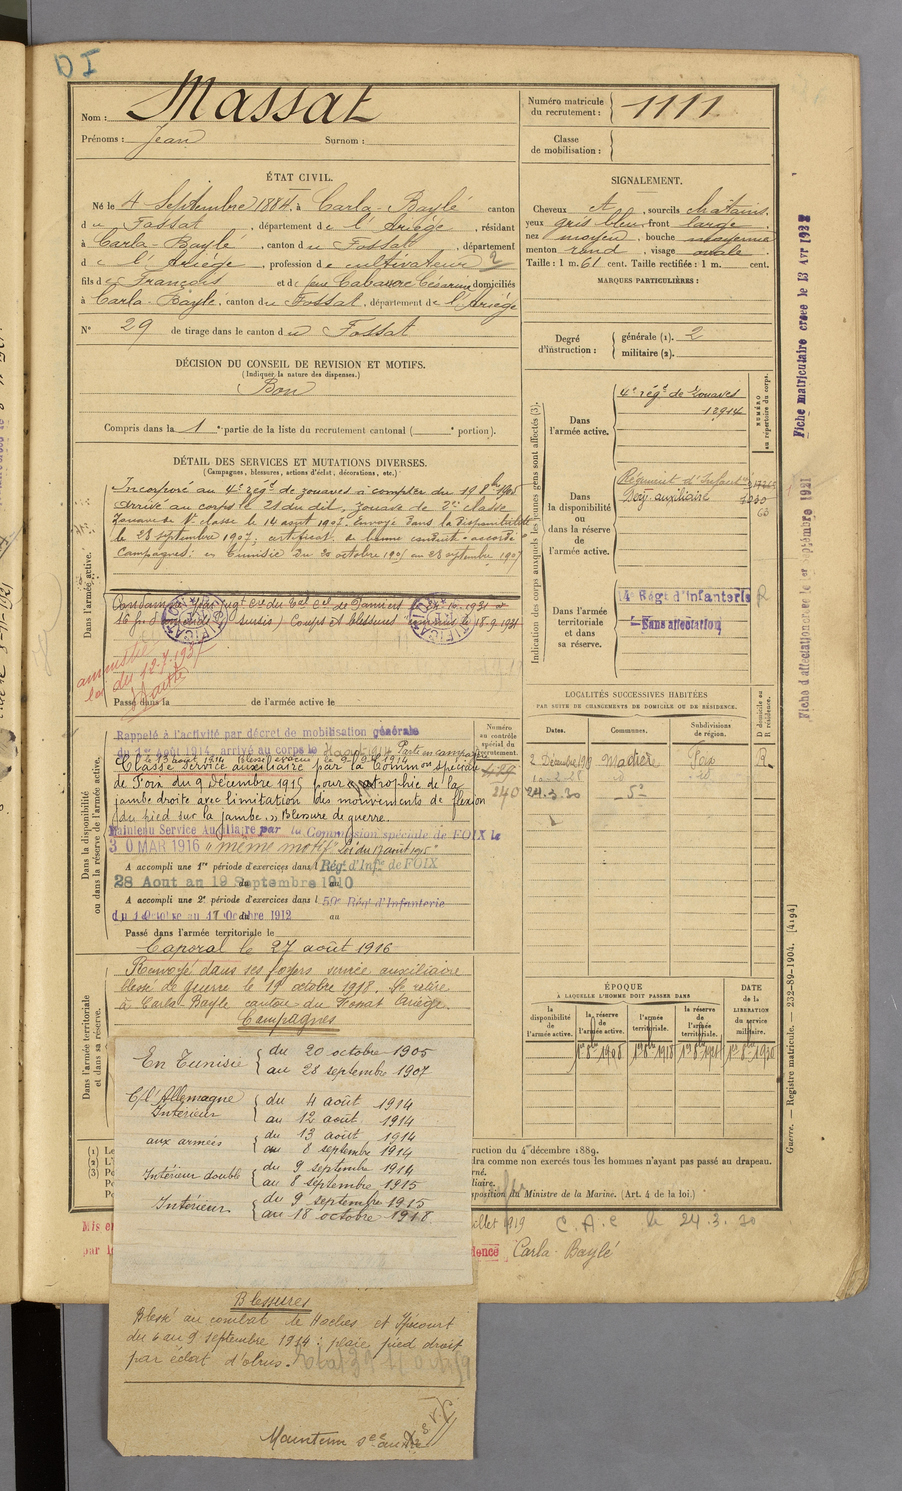 D I
Nom : Massat
Prénoms : Jean Surnom :
ÉTAT CIVIL.
Né le 4 Septembre 1884, à Carla-Baylé canton
du Fossat, département de l'Ariège, résidant
à Carla-Baylé, canton du Fossat, département
de l'Ariège, profession de cultivateur 2
fils de François et de feue Cabarré Césarine domiciliés
à Carla-Baylé, canton du Fossat, département de l'Ariège
N° 29 de tirage dans le canton du Fossat
DÉCISION DU CONSEIL DE REVISION ET MOTIFS.
(Indiquer la nature des dispenses.)
Bon
Compris dans la 1e partie de la liste du recrutement cantonal ( e portion).
DÉTAIL DES SERVICES ET MUTATIONS DIVERSES.
(Campagnes, blessures, actions d'éclat, décorations, etc.)
Dans l'armée active.
Incorporé au 4e régt de zouaves à compter du 19 8bre 1905
arrivé au corps le 21 du dit, zouave de 2e classe
Zouave de 1e classe le 14 août 1907. Envoyé dans la disponibilité
le 23 septembre 1907; certificat de bonne conduite "accordé"
Campagnes: en Tunisie du 20 octobre 1905 au 28 septembre 1907
Coups et blessures
amnistié
loi du 12-7-1937
Passé dans la de l'armée active le
Dans la disponibilité ou dans la réserve de l'armée active.
Rappelé à l'activité par décret de mobilisation générale
du 1er août 1914, arrivé au corps le 4 août 1914 Parti en campagne
le 13 août 1914 Blessé évacué le 9 9 1914
Classé Service auxiliaire par la Common spéciale
de Foix du 9 Décembre 1915 pour atrophie de la
jambe droite avec limitation des mouvements de flexion
du pied sur la jambe. Blessure de guerre.
Maintenu Service Auxiliaire par la Commission spéciale de FOIX le
30 MAR 1916 "même motif" Loi du 17 août 1915
A accompli une 1re période d'exercices dans l Régt d'Infie de FOIX
28 Aout au 19 Septembre 1910
A accompli une 2e période d'exercices dans l 59e Régt d'Infanterie
du 1 Octobre au 17 Octobre 1912 au
Passé dans l'armée territoriale le
Caporal le 27 août 1916
Dans l'armée territoriale et dans sa réserve.
Renvoyé dans ses foyers service auxiliaire
blessé de guerre le 19 octobre 1918. Se retire
à Carla Bayle canton du Fossat Ariège.
Campagnes
En Tunisie { du 20 octobre 1905
au 28 septembre 1907
C/ l'Allemagne
Intérieur { du 4 août 1914
au 12 août 1914
aux armées { du 13 août 1914
au 8 septembre 1914
Intérieur double { du 9 septembre 1914
au 8 septembre 1915
Intérieur { du 9 septembre 1915
au 18 octobre 1918
Blessures
Blessé au combat de Haches et Ipécourt
du 6 au 9 septembre 1914 : plaie pied droit
par éclat d'obus.
Maintenu sce auxre
Numéro matricule du recrutement : 1111
Classe de mobilisation :
SIGNALEMENT.
Cheveux et, sourcils chatains,
yeux gris bleu front large,
nez moyen, bouche moyenne
menton rond, visage ovale.
Taille : 1 m. 61 cent. Taille rectifiée : 1 m. cent.
MARQUES PARTICULIÈRES :
Degré d'instruction : générale (1). 2
militaire (2).
Indication des corps auxquels les jeunes gens sont affectés (3).
NUMÉRO au répertoire du corps.
Dans l'armée active.
4e régt de zouaves
12914
Dans la disponibilité ou dans la réserve de l'armée active.
Régiment d'Infanterie
Don auxiliaire
Dans l'armée territoriale et dans sa réserve.
14e Régt d'Infanterie R
Sans affectation
LOCALITÉS SUCCESSIVES HABITÉES
PAR SUITE DE CHANGEMENTS DE DOMICILE OU DE RÉSIDENCE.
Dates. Communes. Subdivisions de région. D domicile ou R résidence.
Numéro au contrôle spécial du recrutement.
240
2 Décembre 1919 Madière Foix R
24.3.30
ÉPOQUE
À LAQUELLE L'HOMME DOIT PASSER DANS
la disponibilité de l'armée active. la réserve de l'armée active. l'armée territoriale. la réserve de l'armée territoriale.
DATE de la LIBÉRATION du service militaire.
1er 8bre 1908 1er 8bre 1918 1er 8bre 1924 1er 8bre 1930
ruction du 4 décembre 1889.
dra comme non exercés tous les hommes n'ayant pas passé au drapeau.
rné.
iliaire.
sposition du Ministre de la Marine. (Art. 4 de la loi.)
Mis en
par
juillet 1919 C.A.C le 24.3.30
dence Carla-Baylé
Fiche matriculaire créée le 13 Avr 1922
Fiche d'affectation créée le 1er septembre 1921
Guerre. — Registre matricule. — 232-89-1904. [4194]